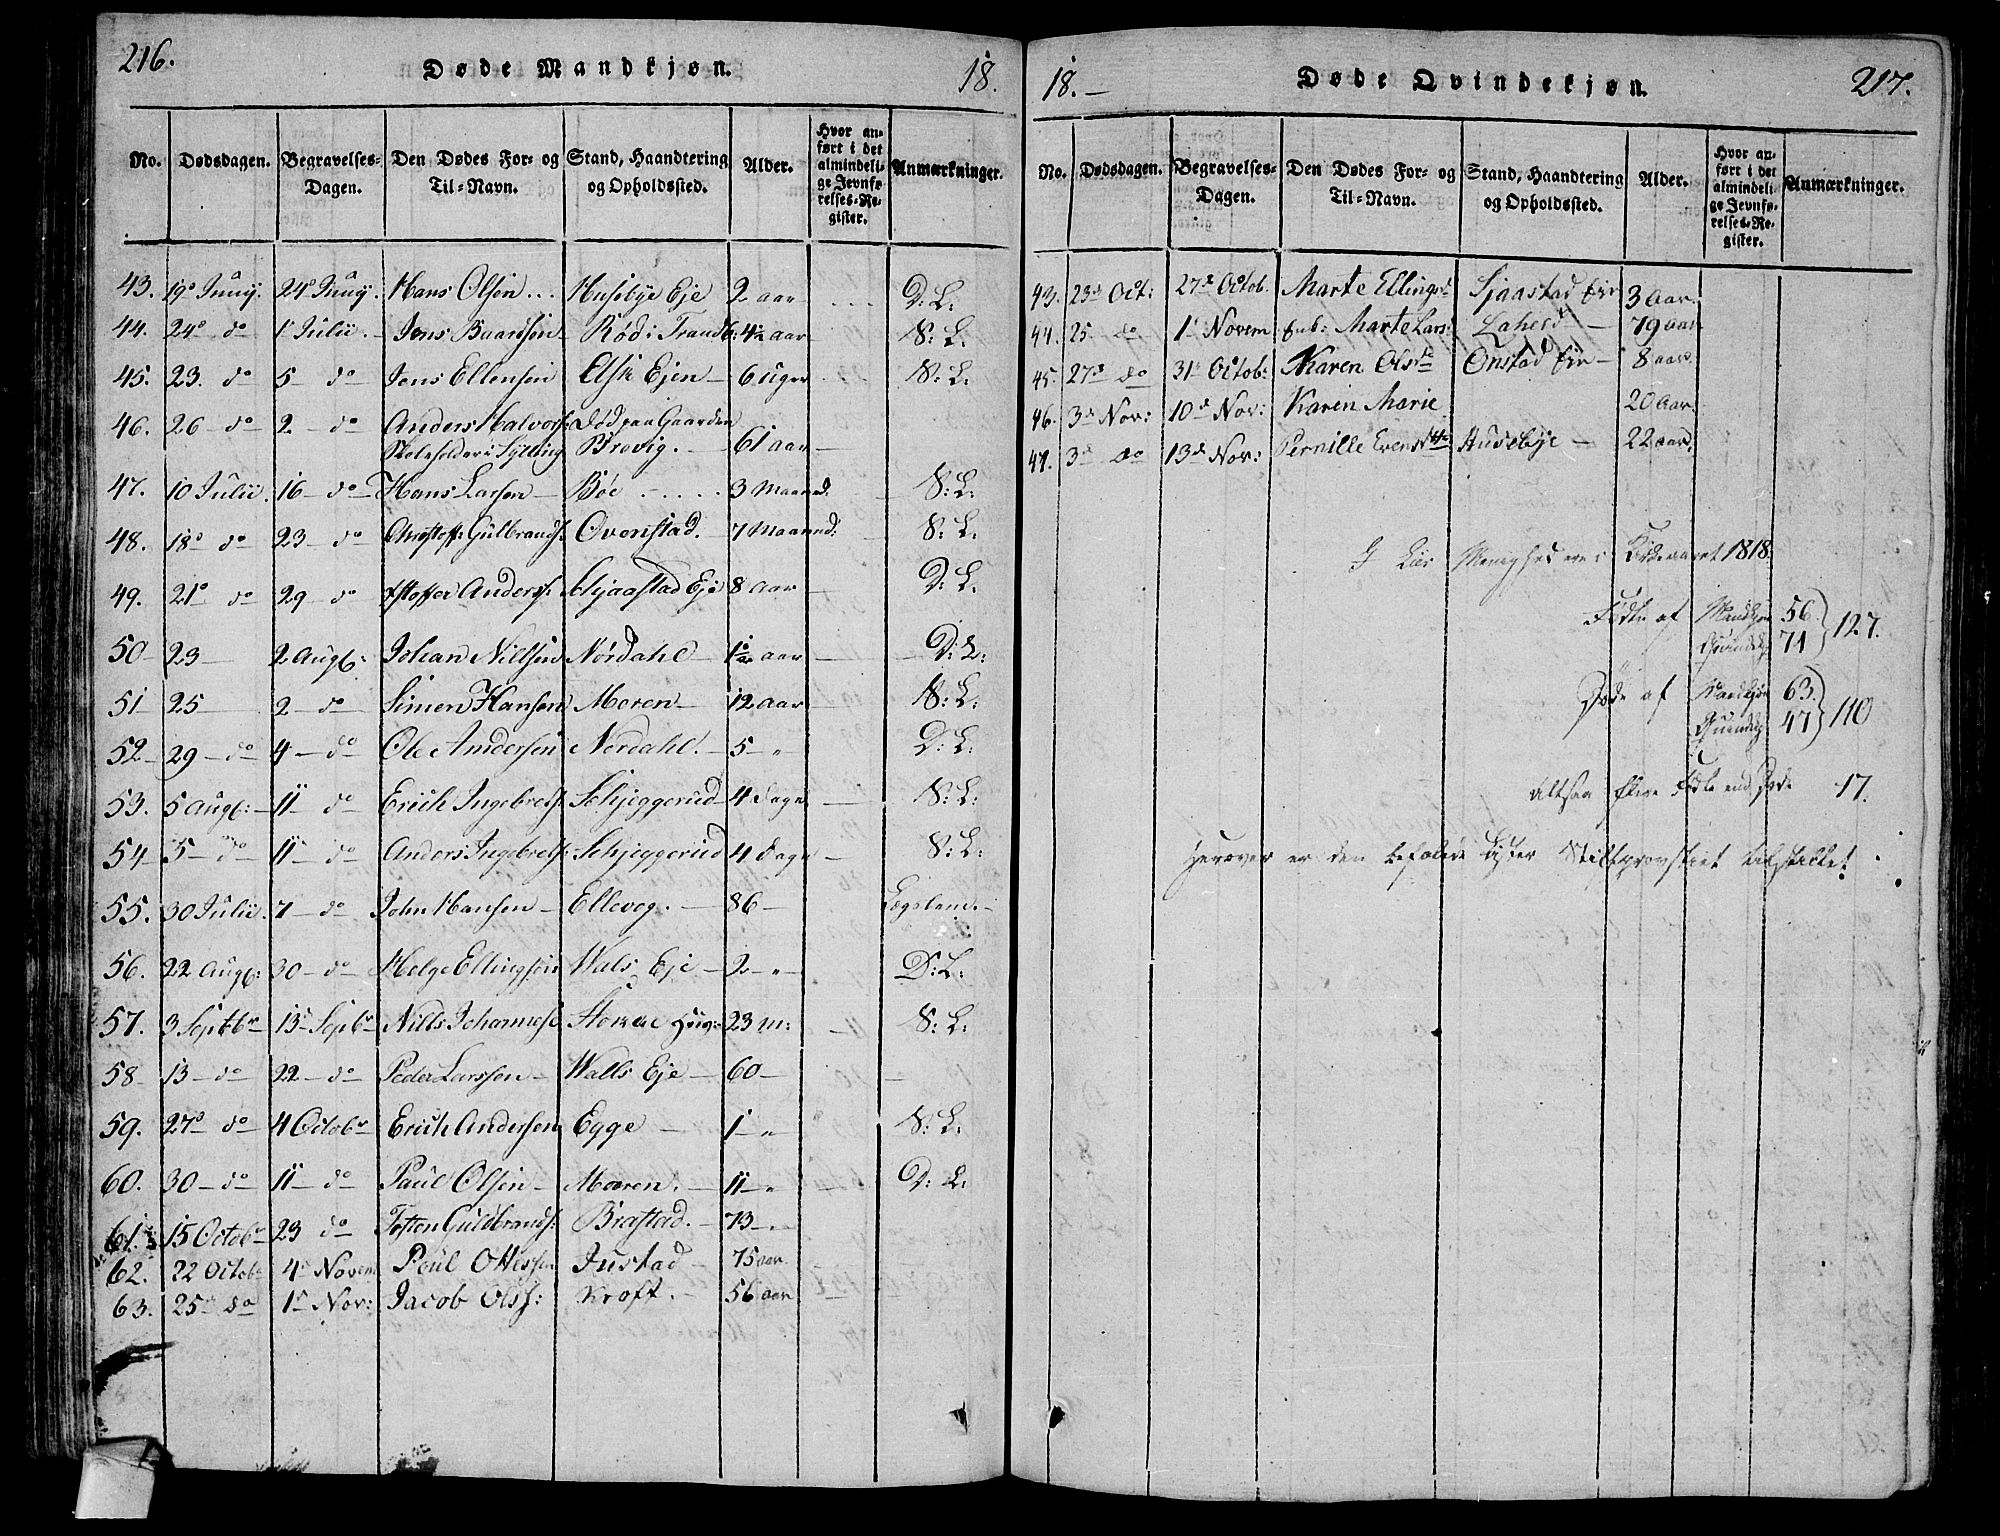 216.
Døde Mandkjøn.
18.
No. Dødsdagen. Begravelses-Dagen. Den Dødes For- og Til-Navn. Stand, Haandtering og Opholdssted. Alder. Hvor anført i det almindelige Jevnførelses-Register. Anmærkninger.
43. 19de Juny. 24de Juny. Hans Olsen ... Husebye Eje 2 aar D: L:
44. 24de do 1 Julii. Jens Baardsen Rød i Trandb: 4½ aar S: L:
45. 23. do 5 do Jens Ellensen Ejen 6 uger S: L:
46. 26 do 2 do Anders Halvors: Død paa Gaarden
Skoleholder i Sylling Brevig. 61 aar
47. 10 Julii 16 do Hans Larsen Böe 3 Maaned. S: L:
48. 18de do 23 do Christoff: Gulbrands: Ovenstad. 7 Maaned: S: L:
49. 21de do 29 do Anders: Schjaastad Eje 8 aar D: L:
50 23 2 Augb: Johan Nillsen Nordahl 1½ aar D: L:
51 25 2 do Simen Hansen Meren 12 aar S: L:
52 29 do 4 do Ole Andersen Nordahl. 5 " D: L:
53. 5 Augb: 11 do Erich Ingebrets: Schjeggerud 4 Dage S: L:
54 5 do 11 do Anders Ingebrets: Schjeggerud 4 Dage S: L:
55. 30 Julii. 7 do John Hansen Elleveg. 86 Lægsland.
56. 22 Augb: 30 do Helge Ellingsen Wals Eje 2 " D: L:
57. 3 Septbr 13 Sepbr Nills Johannes: 23 m: S: L:
58 13 do 22 do Peder Larssen Walls Eje 60
59. 27de do 4 Octobr Erich Andersen Egge 1 " S: L:
60. 30 do 11 do Paul Olsen Maren. 11 " D: L:
61. 15 Octobr 23 do Tosten Guldbrands: Brastad. 73 "
62. 22 Octobr 4de Novem Poul Ottessen Justad 75 aar
63. 25de do 1 Nov: Jacob Ols: Kroft. 56 aar
18.
Døde Qvindekjøn.
217.
No. Dødsdagen. Begravelses-Dagen. Den Dødes For- og Til-Navn. Stand, Haandtering og Opholdssted. Alder. Hvor anført i det almindelige Jevnførelses-Register. Anmærkninger.
43. 23de Oct: 27de Octob. Marte Ellings Sjaastad Eie 3 Aar.
44. 25 do 1 Novem Enk: Marte Lars: 79 aar
45. 27de do 31de Octob: Karen Ols Onstad Eie 8 aar.
46. 3de Nov: 10de Nov: Karen Marie 20 aar.
47. 3de do 13de Nov: Pernille Evens Husebye 22 aar.
I Lier Menighed ere i Kirkeaaret 1818.
Fødte af Mandkjøn 56.
Quindekj 71 } 127.
Døde af Mandkjøn 63.
Quindekj 47 } 110
Altsaa flere Fødte end Døde 17.
Herover er den befalede Lister Stiftprovstiet tilstillet.